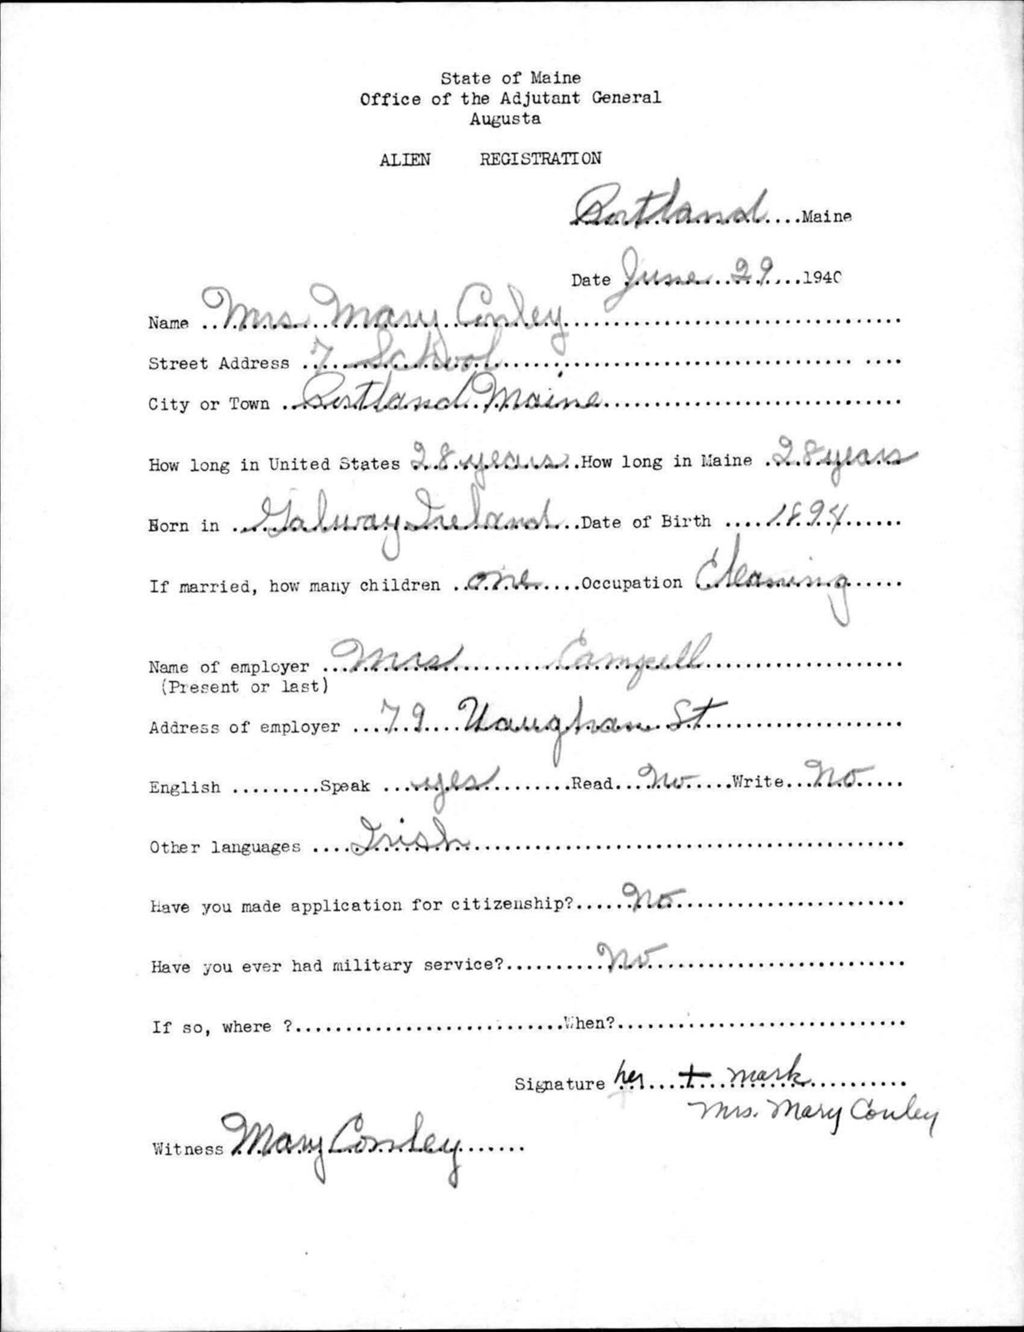 State of Maine
Office of the Adjutant General
Augusta
ALIEN REGISTRATION
Portland....Maine
Date June 29....1940
Name Mrs Mary Conley
Street Address 7 School
City or Town Portland Maine
How long in United States 28 years..How long in Maine 28 years
Born in Galway Ireland...Date of Birth ....1894
If married, how many children one....Occupation Cleaning
Name of employer Mrs Campell
(Present or last)
Address of employer 79 Vaughan St
English .........Speak yes.........Read...No....Write...No
Other languages Irish
Have you made application for citizenship?.....No
Have you ever had military service?..........No
If so, where ?.........................When?.............................
Signature her + mark
Mrs. Mary Conley
Witness Mary Conley